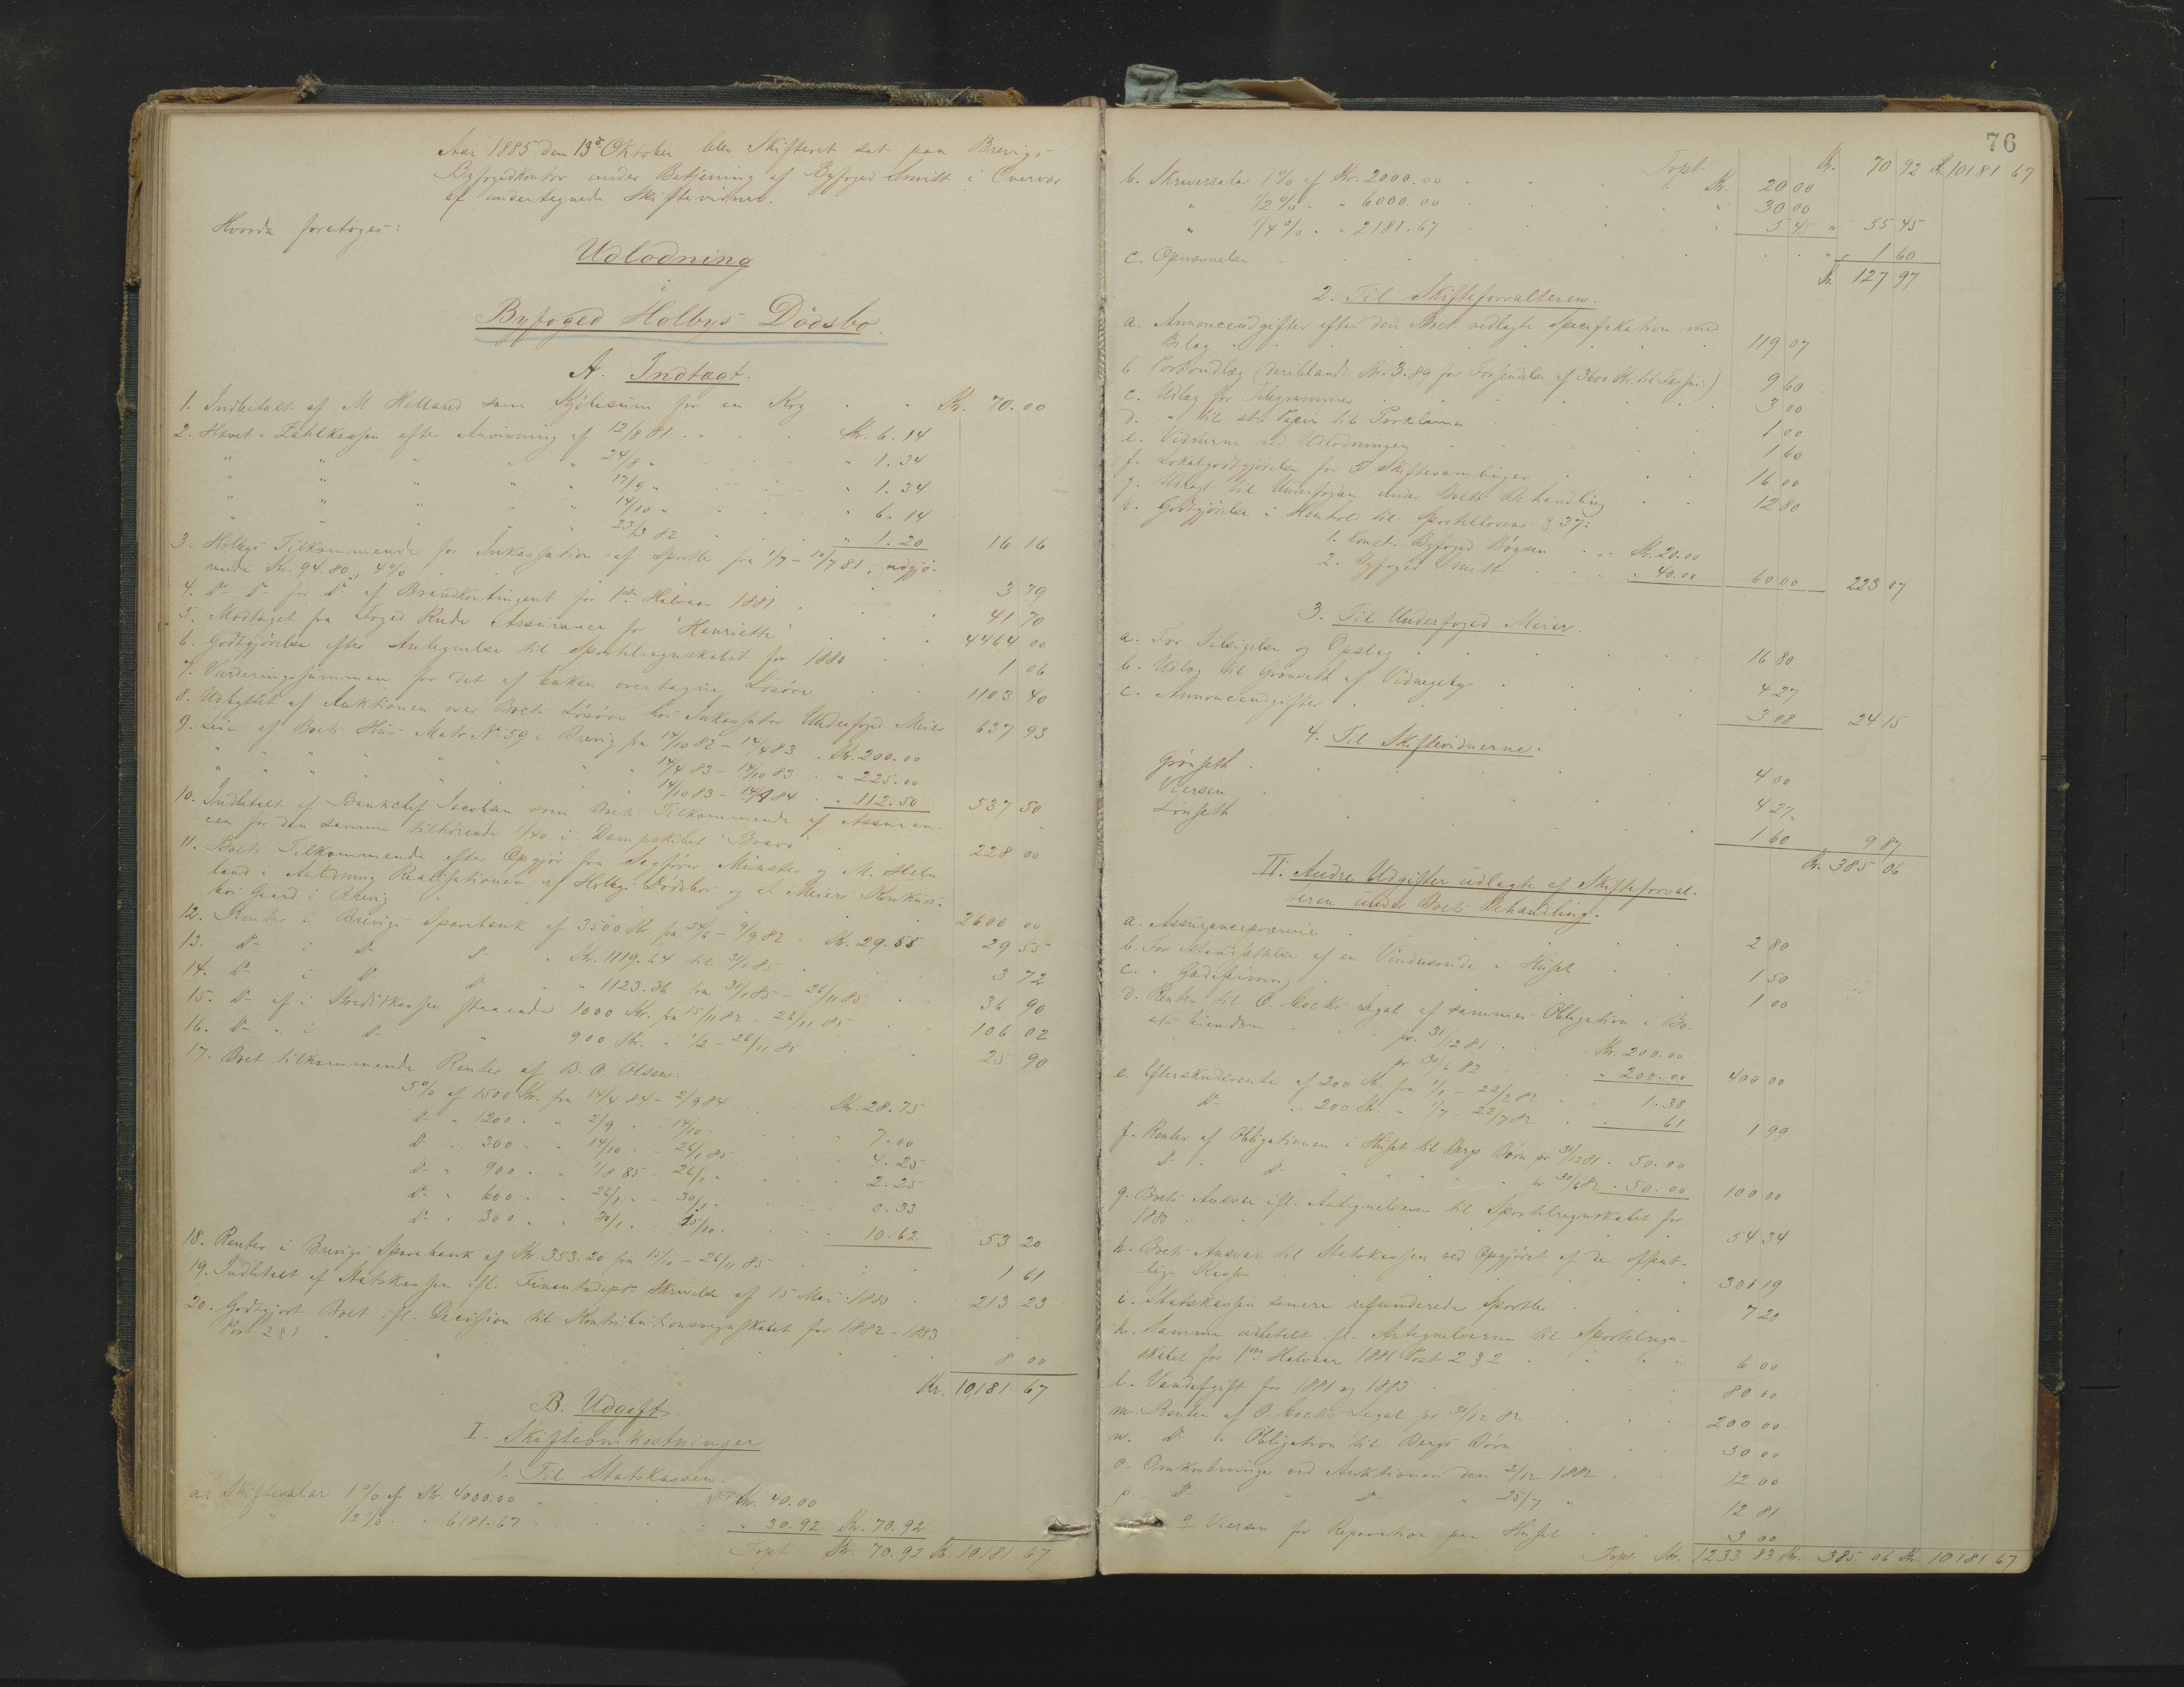 Aar 1885 den 13de Oktober blev Skifteret sat paa Brevigs
Byfogedkontor under Betjening af Byfoged Smitt i Overvær
af undertegnede Skiftevidner.
Hvorda foretoges:
Udlodning
i
Byfoged Holbys Dödsbo.
A. Indtægt.
1. Indbetalt af M. Helland som Kjöbesum for en Kog . . Kr. 70.00
2. Hævet i Zahlkassen efter Anvisning af 12/8 81 . . Kr. 6.14
" " " " " 24/8 " . . " 1.34
" " " " " 17/9 " . . " 1.34
" " " " " 14/10 " . . " 6.14
" " " " " 23/3 82 " . . " 1.20 16 16
3. Holbys Tilkommende for Inkassation af Sportler fra 1/7 - 10/7 81, udgjö-
rende Kr. 94.80, 4% . . 3 79
4. Do Do for Do af Brandkontingent for 1ste Halvaar 1881 . . 41 70
5. Modtaget fra Foged Rude Assurance for "Henriette" . . 4464 00
6. Godtgjörelse efter Antegnelse til Sportelregnskabet for 1880 . . 1 06
7. Vurderingssummen for det af Enken overtagne Lösöre . . 1103 40
8. Udbyttet af Auktionen over Boets Lösöre hos Inkassator Underfoged Meier 637 93
9. Leie af Boets Hus Matr No 59 i Brevig fra 14/10 82 - 14/4 83 . Kr. 200.00
" " " " " " " 14/4 83 - 14/10 83 . " 225.00
" " " " " " " 14/10 83 - 14/4 84 . " 112.50 537 50
10. Indbetalt af Bankchef Jacobsen som Boets Tilkommende af Assuran-
cen for den samme tilhörende 1/40 i Dampskibet "Bravo" . . 228 00
11. Boets Tilkommende efter Opgjör fra Sagförer Münster og M. Hel-
land i Anledning Realisationen af Holbys Dödsbos og S. Meiers Konkurs-
bos Gaard i Brevig . . 2600 00
12. Renter i Brevigs Sparebank af 3500 Kr. fra 24/6 - 9/9 82 . Kr. 29.55 29 55
13. Do i Do Do " Kr. 1119.64 til 31/1 85 . . 3 72
14. Do i Do Do " " 1123.36 fra 31/1 85 - 26/11 85 . . 36 90
15. Do af i Kreditkassen staaende 1000 Kr. fra 15/11 82 - 26/11 85 . . 106 02
16. Do " i Do " 900 Kr. " 1/2 - 26/11 85 . . 25 90
17. Boet tilkommende Renter af B. O. Olsen:
5% af 1500 Kr. fra 14/4 84 - 2/9 84 . . Kr. 28.75
Do " 1200 " " 2/9 " - 14/10 " . . 7.00
Do " 300 " " 14/10 " - 26/1 85 . . 4.25
Do " 900 " " 1/8 85 - 26/1 " . . 2.25
Do " 600 " " 26/1 " - 30/1 " . . 0.33
Do " 300 " " 30/1 " - 15/10 " . . 10.62 53 20
18. Renter i Brevigs Sparebank af Kr. 353.20 fra 15/10 - 26/11 85 . . 1 61
19. Indbetalt af Statskassen ifl. Finantsdepts. Skrivelse af 15 Mai 1883 . . 213 23
20. Godtgjort Boet ifl. Decission til Kontributionsregnskabet for 1882-1883
Post 2 § 1 . . 8 00
Kr. 10181 67
B. Udgift.
I. Skifteomkostninger
1. Til Statskassen.
a. Skiftesalar 1% af Kr. 4000.00 . . Kr. 40.00
" 1/2% " " 6181.67 . . " 30.92 Kr. 70.92
Trpt Kr. 70.92 Kr. 10181 67
76
Trpt. Kr. 70 92 Kr. 10181 67
b. Skriversalar 1% af Kr. 2000.00 . . Kr. 20 00
" 1/2% " " 6000.00 . . " 30 00
" 1/4% " " 2181.67 . . " 5 45 " 55 45
c. Opnævnelse . . " 1 60
Kr. 127 97
2. Til Skifteforvalteren.
a. Annonceudgifter efter den Boet vedlagte Specifikation med
Bilag . . 119 07
b. Portoudlæg (deriblandt Kr. 3.89 for Forsendelse af 3600 Kr. til) 9 60
c. Udlæg for Telegrammer . . 3 00
d. " til st. Papir til Proklama . . 1 00
e. Vidnerne ved Udlodningen . . 1 60
f. Lokalgodtgjörelse for 5 Skiftesamlinger . . 16 00
g. Udlagt til Underfogden under Boets Behandling . . 12 80
h. Godtgjörelse i Henhold til Sportellovens § 37:
1. Konst. Byfoged Böysen . . Kr. 20.00
2. Byfoged Smitt . . " 40.00 60 00 223 07
3. Til Underfoged Meier.
a. For Tilsigelse og Opslag . . 16 80
b. Udlæg til Grönseth af Vidnegebyr . . 4 27
c. Annonceudgifter . . 3 08 24 15
4. Til Skiftevidnerne.
Grönseth . . 4 00
Viersen . . 4 27
Lönseth . . 1 60 9 87
Kr. 385 06
II. Andre Udgifter udlagte af Skifteforval-
teren under Boets Behandling.
a. Assurancepræmie . . 2 80
b. For Istandsættelse af en Vinduesrude i Huset . . 1 50
c. " Gadefeining . . 1 00
d. Renter til O. Cocks Legat af sammes Obligation i Bo-
ets Eiendom pr. 31/12 81 . . Kr. 200.00
pr. 30/6 82 . . " 200.00 400 00
e. Efterskudsrente af 200 Kr. fra 1/1 - 22/2 82 . . 1.38
Do " 200 Kr. " 1/7 - 22/7 82 . . 61 1 99
f. Renter af Obligationen i Huset til Bergs Börn pr 31/12 81 . 50.00
Do " Do " " " " pr 30/6 82 . 50.00 100 00
g. Boets Ansvar ifl. Antegnelserne til Sportelregnskabet for
1880 . . 54 34
h. Boets Ansvar til Statskassen ved Opgjöret af de offent-
lige Kasser . . 301 19
i. Statskassen senere refunderede Sportler . . 7 20
k. Samme udbetalt ifl. Antegnelserne til Sportelregn-
skabet for 1ste Halvaar 1881 Post 2 § 2 . . 6 00
l. Vandafgift for 1881 og 1883 . . 80 00
m. Renter af O. Cocks Legat pr 31/12 82 . . 200 00
n. Do " Obligation til Bergs Börn . . 50 00
o. Omkostninger ved Auktionen den 2/12 1882 . . 12 00
p. Do " Do " 25/7 " . . 12 81
q Viersen for Reparation paa Huset . . 3 00
Trpt Kr. 1233 83 Kr. 385 06 Kr. 10181 67